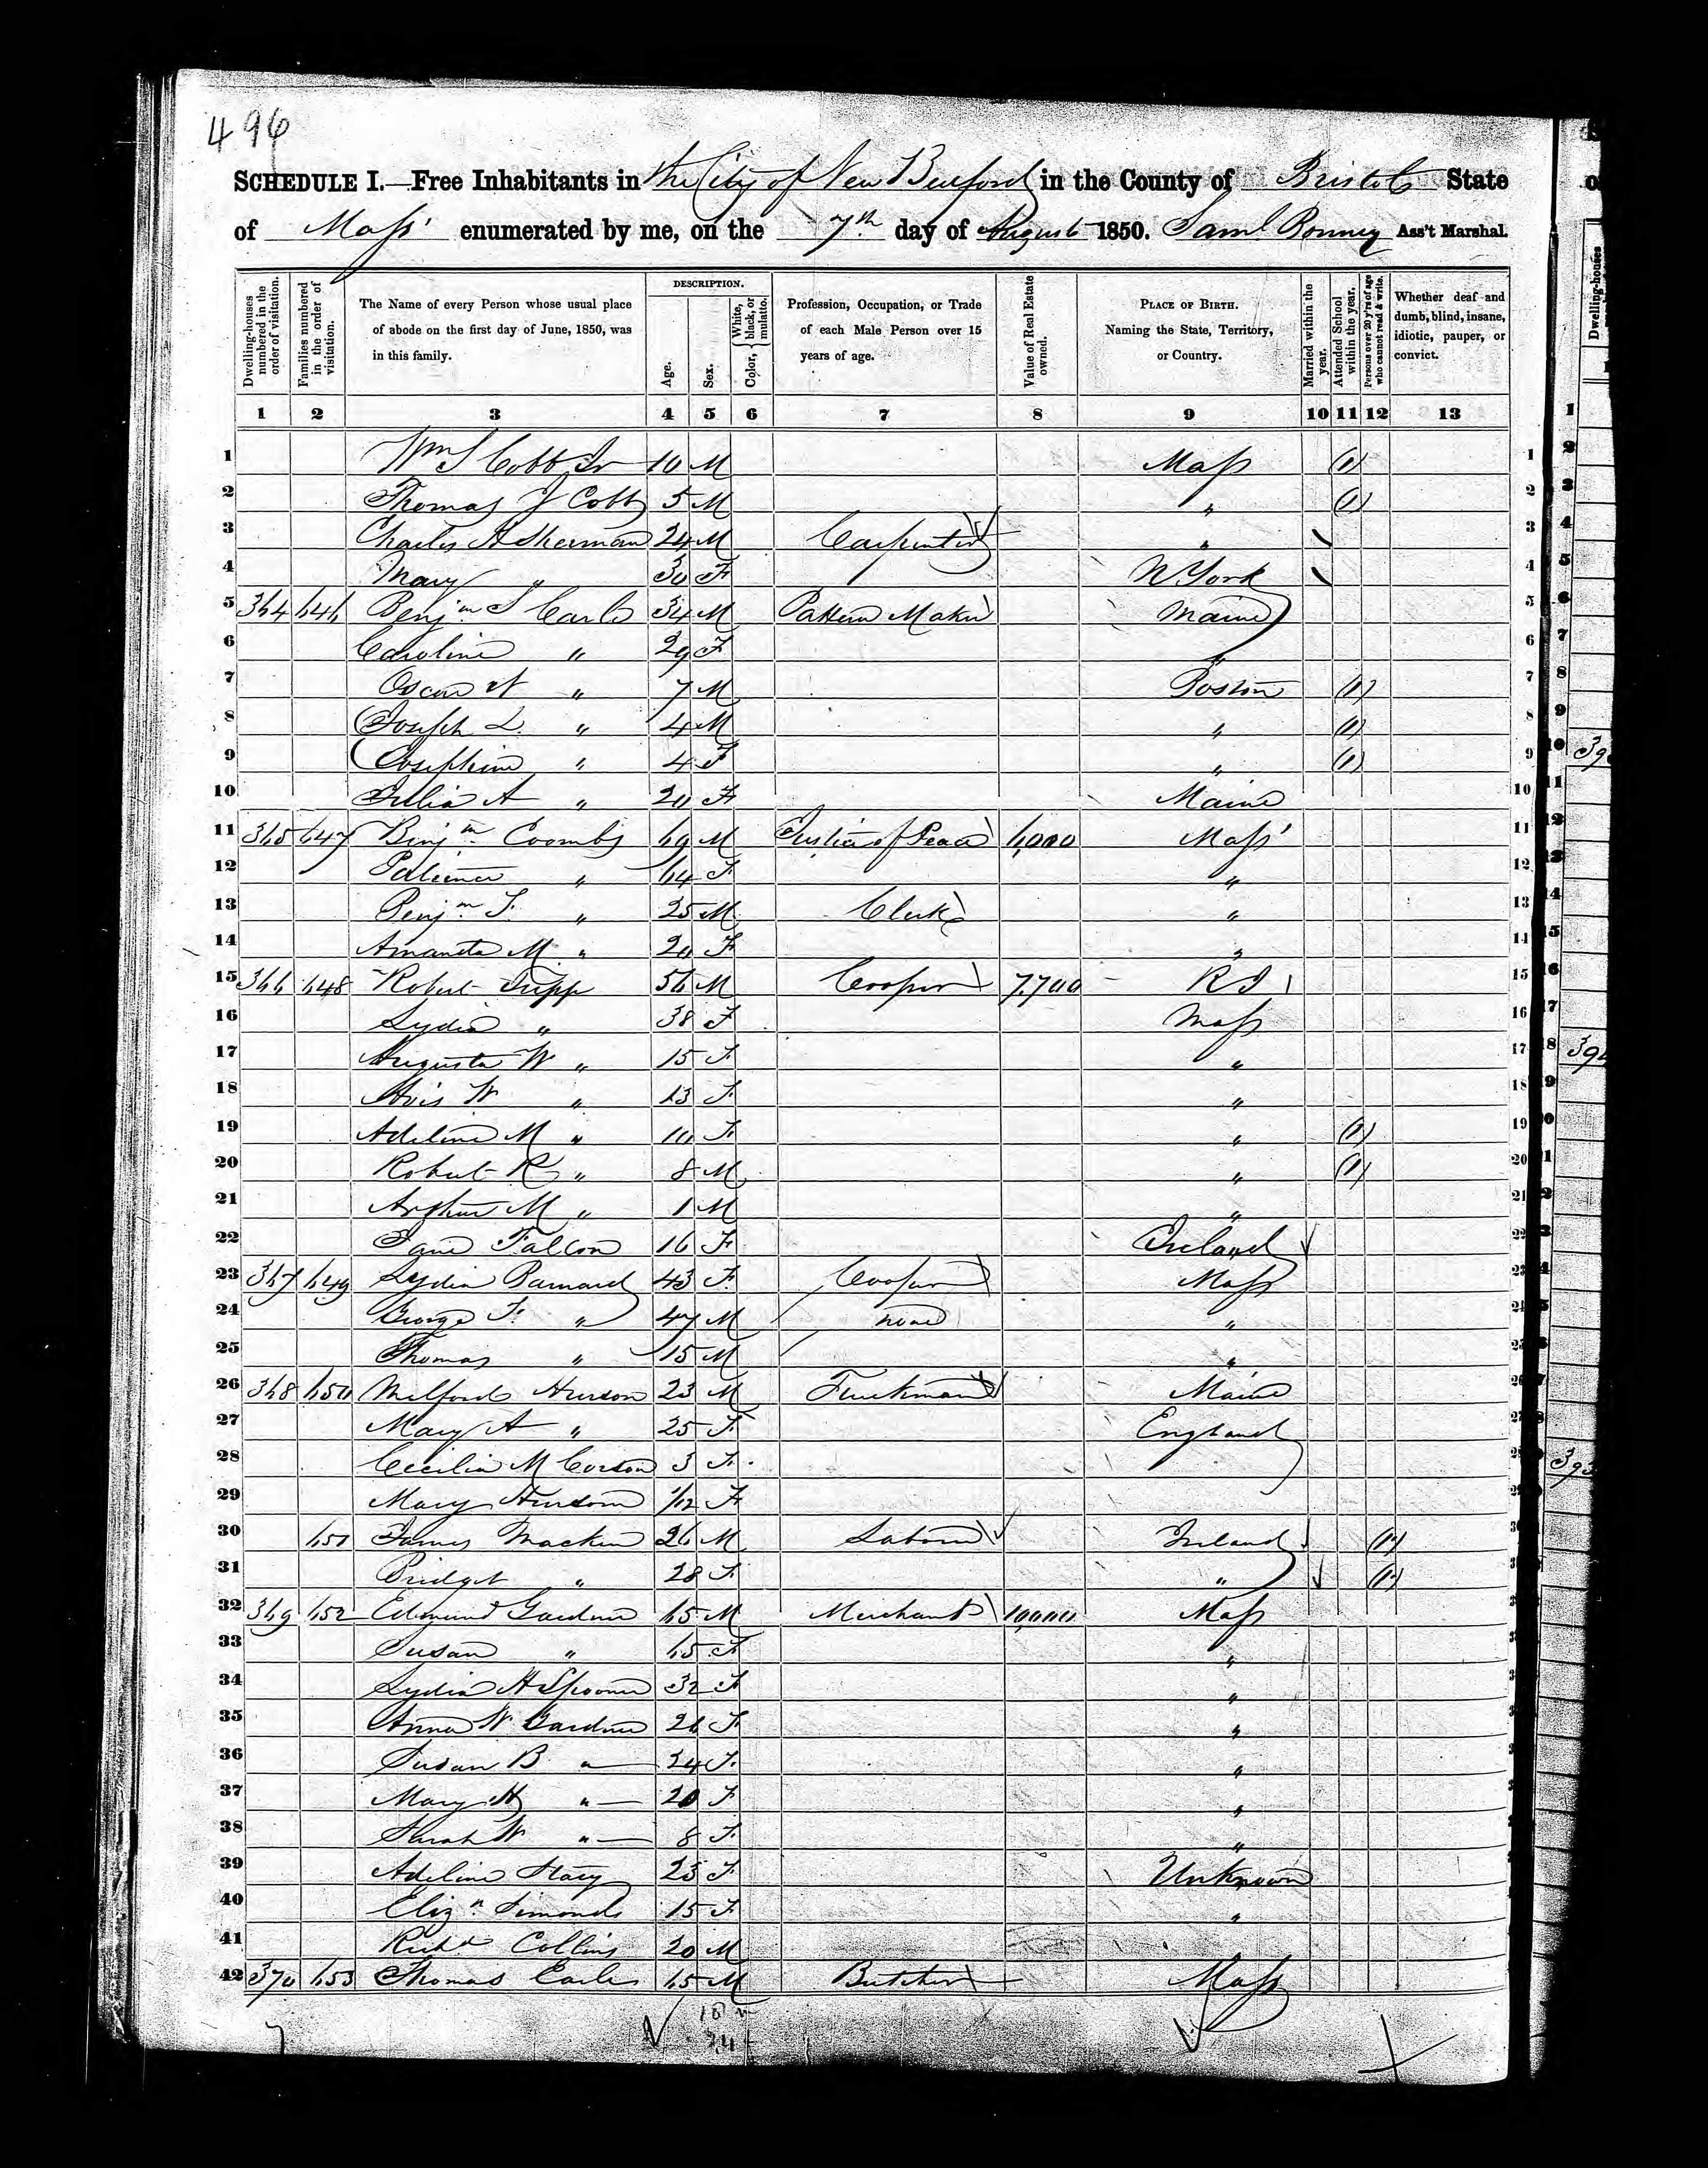 496
SCHEDULE I.—Free Inhabitants in the City of New Bedford in the County of Bristol State
of Mass' enumerated by me, on the 7th day of August 1850. Saml Bonney Ass't Marshal.
Dwelling-houses numbered in the order of visitation.
Families numbered in the order of visitation.
The Name of every Person whose usual place of abode on the first day of June, 1850, was in this family.
DESCRIPTION.
Age.
Sex.
Color, { White, black, or mulatto.
Profession, Occupation, or Trade of each Male Person over 15 years of age.
Value of Real Estate owned.
PLACE OF BIRTH. Naming the State, Territory, or Country.
Married within the year.
Attended School within the year.
Persons over 20 y'rs of age who cannot read & write.
Whether deaf and dumb, blind, insane, idiotic, pauper, or convict.
1 2 3 4 5 6 7 8 9 10 11 12 13
1 Wm S Cobb Jr 10 M Mass (1) 1
2 Thomas J Cobb 5 M " (1) 2
3 Charles A Sherman 24 M Carpenter " 3
4 Mary " 30 F N York 4
5 364 646 Benjm S 34 M Pattern Maker Maine 5
6 Caroline " 29 F " 6
7 Oscar " 7 M Boston (1) 7
8 Joseph L. " 4 M " (1) 8
9 Josephine " 4 F " (1) 9
10 Julia A " 20 F Maine 10
11 365 647 Benjm Coombs 69 M Justice of Peace 6,000 Mass' 11
12 Patience " 64 F " 12
13 Benjm F. " 25 M Clerk " 13
14 Amanda M. " 20 F " 14
15 366 648 Robert Tripp 56 M Cooper 7,700 R I 15
16 Lydia " 38 F Mass 16
17 Augusta W " 15 F " 17
18 Avis W " 13 F " 18
19 Adeline M " 10 F " (1) 19
20 Robert R " 8 M " (1) 20
21 Arthur M " 1 M " 21
22 Jane Falcon 16 F Ireland 22
23 367 649 Lydia Barnard 43 F Cooper Mass 23
24 George F. " 47 M none "
25 Thomas " 15 M "
26 368 650 Milford Hudson 23 M Truckman Maine
27 Mary A " 25 F England
28 Cecilia M 3 F
29 Mary Hudson 1/12 F
30 651 James Mackin 26 M Laborer Ireland (1)
31 Bridget " 28 F " (1)
32 369 652 Edmund Gardner 65 M Merchant 10,000 Mass
33 Susan " 65 F "
34 Lydia H Spooner 32 F "
35 Anna W Gardner 26 F "
36 Susan B " 24 F "
37 Mary H " 20 F "
38 Sarah W " 8 F "
39 Adeline Stacy 25 F Unknown
40 Eliza Simonds 15 F "
41 Richd Collins 20 M "
42 370 653 Thomas Earle 65 M Butcher Mass
18
24